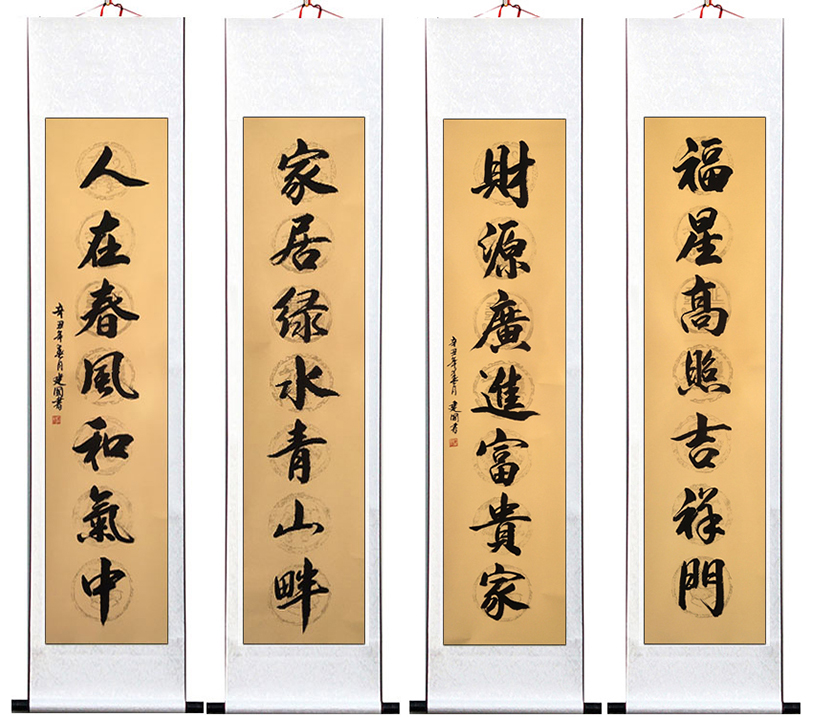 福星高照吉祥門
財源廣進富貴家
辛丑年春月 建國書
家居绿水青山畔
人在春風和氣中
辛丑年春月建國書